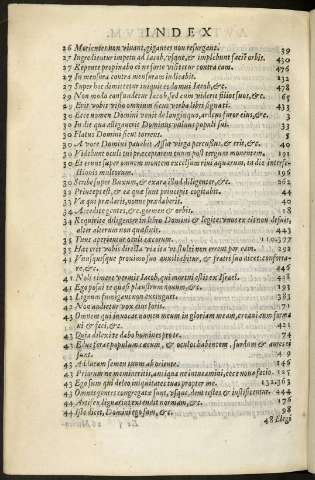 INDEX
26 Morientes non viuant, gigantes non resurgant. 39
27 Ingredietur impetu ad Iacob, & implebunt faciē orbis. 430
27 Reponet propinabo ei ne forte visitetur contra eam. 476
27 In mensura contra mensuram iudicabit. 132
27 Super hoc dimittetur iniquitas domui Iacob, &c. 478
29 Non modo confundetur Iacob, sed cum viderit filios suos, &c. 65
29 Erit vobis visio omnium sicut verba libri signati. 433
30 Ecce nomen Domini venit de longinquo, ardens furor eius, &c. 3
30 In die qua alligauerit Dominus vulnus populi sui. 33
30 Flatus Domini sicut torrens. 5
30 A voce Domini pauebit Assur virga percussus, & erit, &c. 40
30 Videbunt oculi tui præceptorem tuum post tergum monentem. 191
30 Et erunt super omnem montem excelsum riui aquarum, in die interfe-
ctionis multorum. 196
30 Scribe super buxum, & exara illud diligenter, &c. 262
32 Princeps est, & ea quæ sunt principis cogitabit. 44
33 Væ qui prædaris, nonne prædaberis. 40
34 Accedite gentes, &c. germen & orbis. 128
34 Requirite diligenter in libro Domini & legite: vnus ex eis non defuit,
alter alterum non quæsiuit. 443
35 Tunc aperientur oculi cæcorum. 110.377
35 Hæc erit vobis directa via ita vt stulti non errent per eam. 292
41 Vnusquisque proximo suo auxiliabitur, & fratri suo dicet: conforta-
re, &c. 446
41 Noli timere vermis Iacob, qui mortui estis ex Israel. 428
41 Ego posui te quasi plaustrum nouum, &c. 193
42 Lignum fumigans non extinguet. 383
42 Non audietur vox eius foris. 71
43 Omnem qui inuocat nomen meum in gloriam meam, creaui eum forma
ui & feci, &c. 421
43 Quia dilexi te dabo homines pro te. 74
43 Educ foras populum cæcum, & oculos habentem, surdum & aures ei
sunt. 4 9
43 Adducam semen tuum ab oriente. 146
43 Priorum ne memineritis, antiqua ne intueamini, ecce noua facio. 125
43 Ego sum qui deleo iniquitates tuas propter me. 132.363
43 Omnes gentes congregatæ sunt, vsque, dent testes & iustificentur. 444
44 Artifex lignarius extendit normam, &c. 176
44 Iste dicet, Domini ego sum, &c. 98
48 Elegi